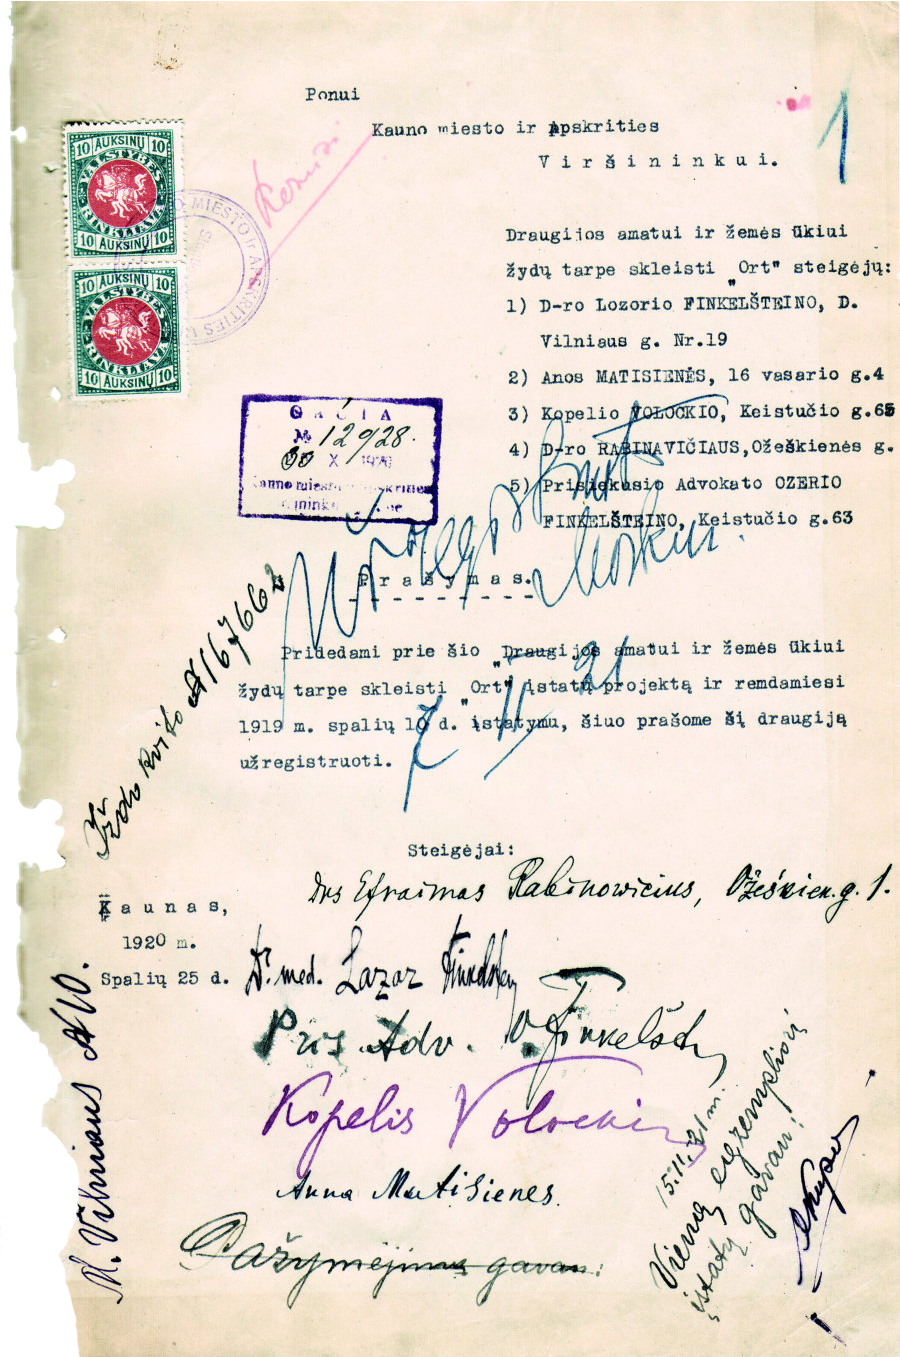 Ponui
Kauno miesto ir Apskrities
Viršininkui.
1
10 AUKSINŲ 10
VALSTYBĖS
RINKLIAVA
10 AUKSINŲ 10
10 AUKSINŲ 10
VALSTYBĖS
RINKLIAVA
10 AUKSINŲ 10
MIESTO Ir APSKRITIES
Draugijos amatui ir žemės ūkiui
žydų tarpe skleisti „Ort" steigėjų:
1) D-ro Lozorio FINKELŠTEINO, D.
Vilniaus g. Nr.19
2) Anos MATISIENĖS, 16 vasario g.4
3) Kopelio VOLOCKIO, Keistučio g.65
4) D-ro RABINAVIČIAUS,Ožeškienės g.
5) Prisiekusio Advokato OZERIO
FINKELŠTEINO, Keistučio g.63
GAUTA
№ 12928.
30 X 1920
Prašymas.
Pridedami prie šio „Draugijos amatui ir žemės ūkiui
žydų tarpe skleisti „Ort" įstatų projektą ir remdamiesi
1919 m. spalių 10 d. įstatymu, šiuo prašome šį draugiją
užregistruoti.
7 II 21
Iždo kvito № 167662
Steigėjai:
Drs Efraimas Rabinowicius, Ožeškien. g. 1.
Kaunas,
1920 m.
Spalių 25 d.
Dr. med. Lazar
Pris. Adv.
Kopelis Volockis
Anna Matisienes.
Pažymėjimą gavau:
N. Vilniaus № 10.
15.II.21 m.
Vieną egzempliorį
įstatų gavau!